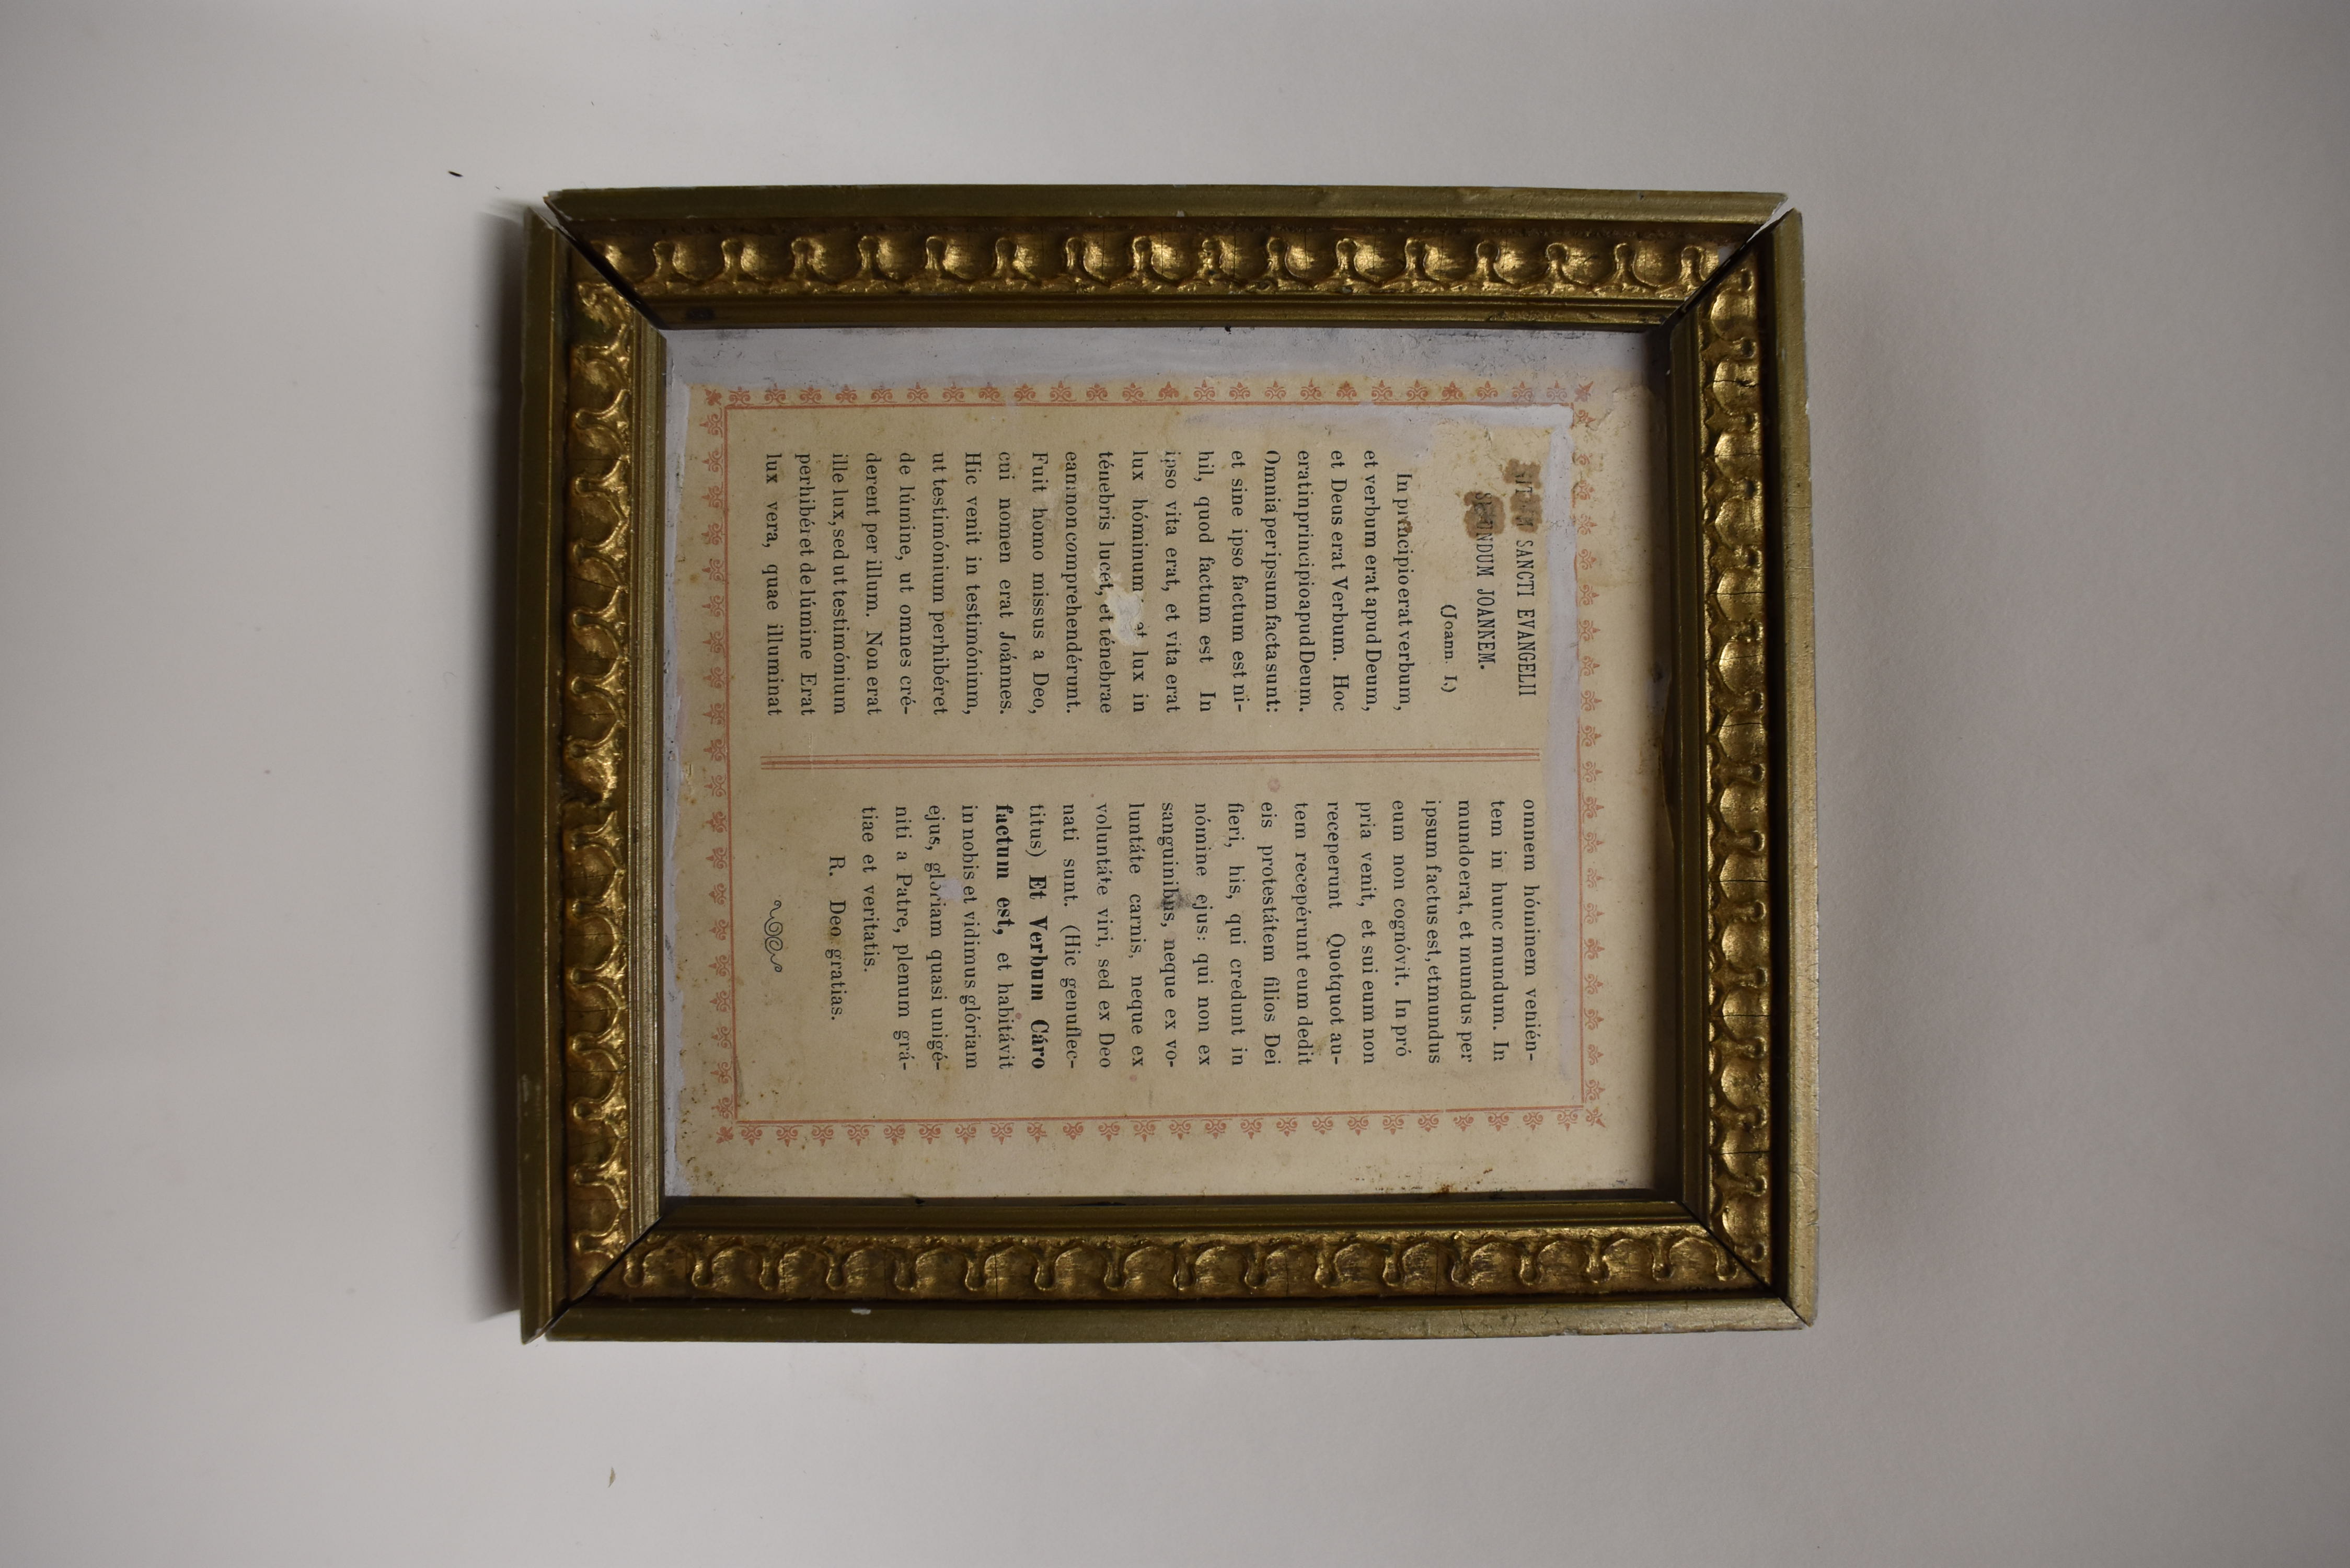 SANCTI EVANGELII
JOANNEM.
(Joann. I.)
In principio erat verbum,
et verbum erat apud Deum,
et Deus erat Verbum. Hoc
erat in principio apud Deum.
Omnia per ipsum facta sunt:
et sine ipso factum est ni-
hil, quod factum est In
ipso vita erat, et vita erat
lux hóminum et lux in
ténebris lucet, et ténebrae
eam non comprehendérunt.
Fuit homo missus a Deo,
cui nomen erat Joánnes.
Hic venit in testimóninm,
ut testimónium perhibéret
de lúmine, ut omnes cré-
derent per illum. Non erat
ille lux, sed ut testimónium
perhibéret de lúmine Erat
lux vera, quae illuminat
omnem hóminem venién-
tem in hunc mundum. In
mundo erat, et mundus per
ipsum factus est, et mundus
eum non cognóvit. In pró
pria venit, et sui eum non
receperunt Quotquot au-
tem recepérunt eum dedit
eis protestátem filios Dei
fieri, his, qui credunt in
nómine ejus: qui non ex
sanguinibus, neque ex vo-
luntáte carnis, neque ex
voluntáte viri, sed ex Deo
nati sunt. (Hic genuflec-
titus) Et Verbum Cáro
factum est, et habitávit
in nobis et vidimus glóriam
ejus, glóriam quasi unigé-
niti a Patre, plenum grá-
tiae et veritatis.
R. Deo gratias.